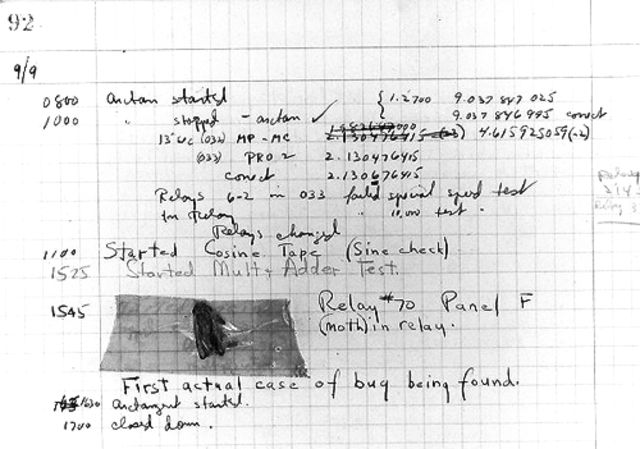 92
9/9
0800 arctan started { 1.2700 9.037 847 025
1000 " stopped - arctan ✓ 9.037 846 995 correct
13"UC (032) MP - MC 2.130476415 (-3) 4.615925059(-2)
(033) PRO 2 2.130476415
correct 2.130676415
Relays 6-2 in 033 failed special speed test
in Relay " 10,000 test .
Relays changed
1100 Started Cosine Tape (Sine check)
1525 Started Mult + Adder Test.
1545 Relay #70 Panel F
(moth) in relay.
First actual case of bug being found.
1630 arctangent started.
1700 closed down.